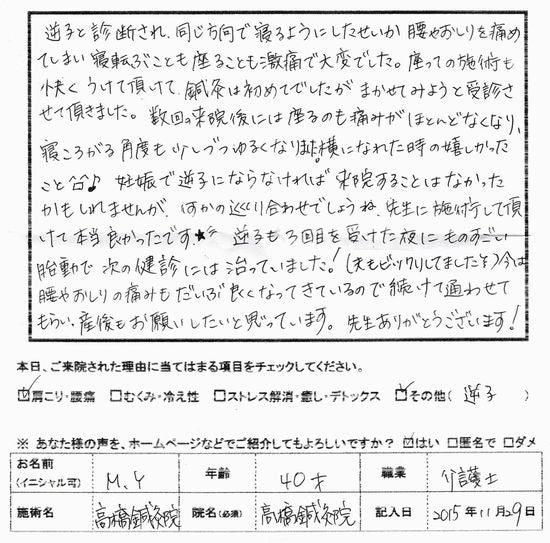 逆子と診断され、同じ方向で寝るようにしたせいか腰やおしりを痛め
てしまい寝転ぶことも座ることも激痛で大変でした。座っての施術も
快くうけて頂けて、鍼灸は初めてでしたがまかせてみようと受診さ
せて頂きました。数回の来院後には座るのも痛みがほとんどなくなり、
寝ころがる角度も少しづつゆるくなり横になれた時の嬉しかった
こと♪ 妊娠で逆子にならなければ来院することはなかった
かもしれませんが、何かの巡り合わせでしょうね、先生に施術して頂
けて本当良かったです★ 逆子も3回目を受けた夜にものすごい
胎動で次の健診には治っていました!(夫もビックリしてました)今は
腰やおしりの痛みもだいぶ良くなってきているので続けて通わせて
もらい、産後もお願いしたいと思っています。先生ありがとうございます!
本日、ご来院された理由に当てはまる項目をチェックしてください。
☑肩こり・腰痛 □むくみ・冷え性 □ストレス解消・癒し・デトックス ☑その他( 逆子 )
※ あなた様の声を、ホームページなどでご紹介してもよろしいですか? ☑はい □匿名で □ダメ
お名前 M.Y 年齢 40才 職業 介護士
(イニシャル可)
施術名 高橋鍼灸院 院名(必須) 高橋鍼灸院 記入日 2015年11月29日